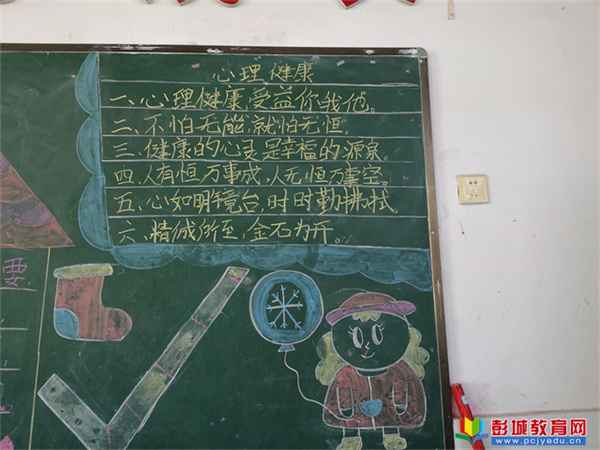 心理健康
一、心理健康,受益你我他。
二、不怕无能,就怕无恒.
三、健康的心灵是幸福的源泉。
四.人有恒万事成,人无恒万事空。
五、心如明镜台,时时勤拂拭.
六、精诚所至,金石为开。
要,
彭城教育网
www.pcjyedu.cn